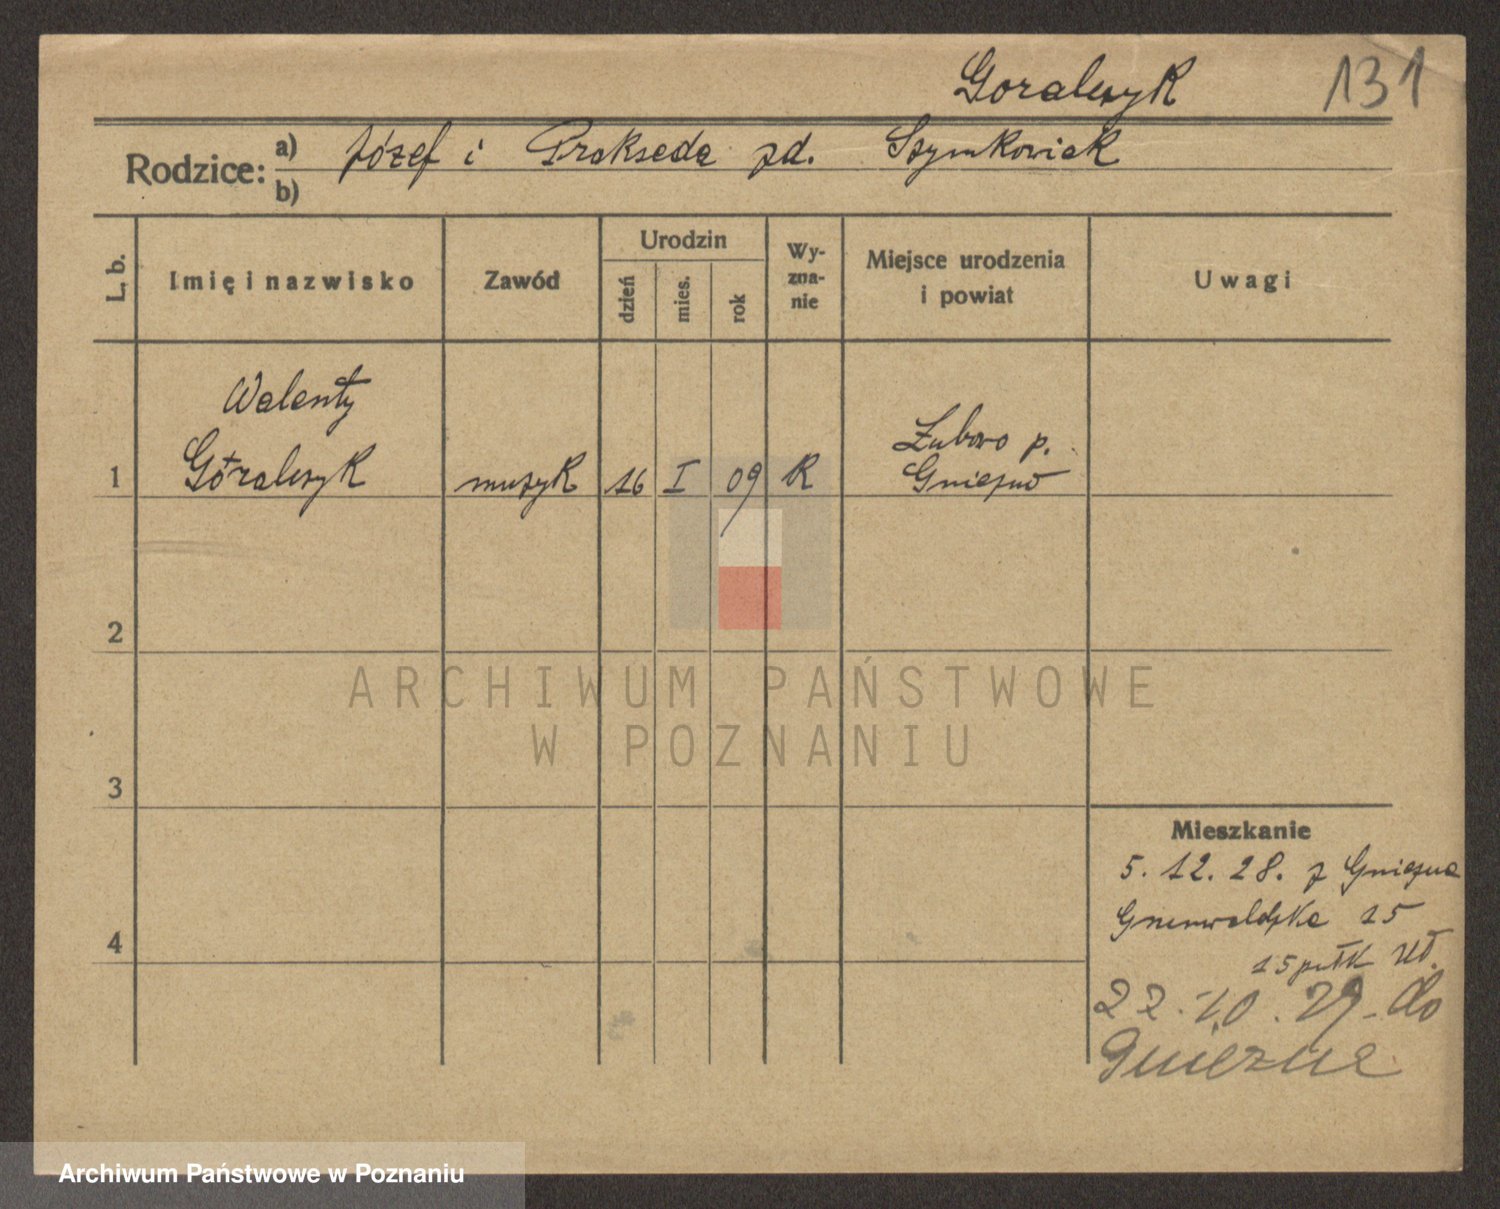 Goralczyk 131
Rodzice: a) Józef i Prakseda zd. Szymkowiak
b)
L. b. Imię i nazwisko Zawód Urodzin dzień mies. rok Wy-zna-nie Miejsce urodzenia i powiat Uwagi
Walenty
1 Góralczyk muzyk 16 I 09 R Łubowo p. Gniezno
2
3
4
Mieszkanie
5. 12. 28. z Gniezna
Grunwaldzka 15
15 pułk Uł.
22. 10. 29. do
Gniezna
ARCHIWUM PAŃSTWOWE
W POZNANIU
Archiwum Państwowe w Poznaniu